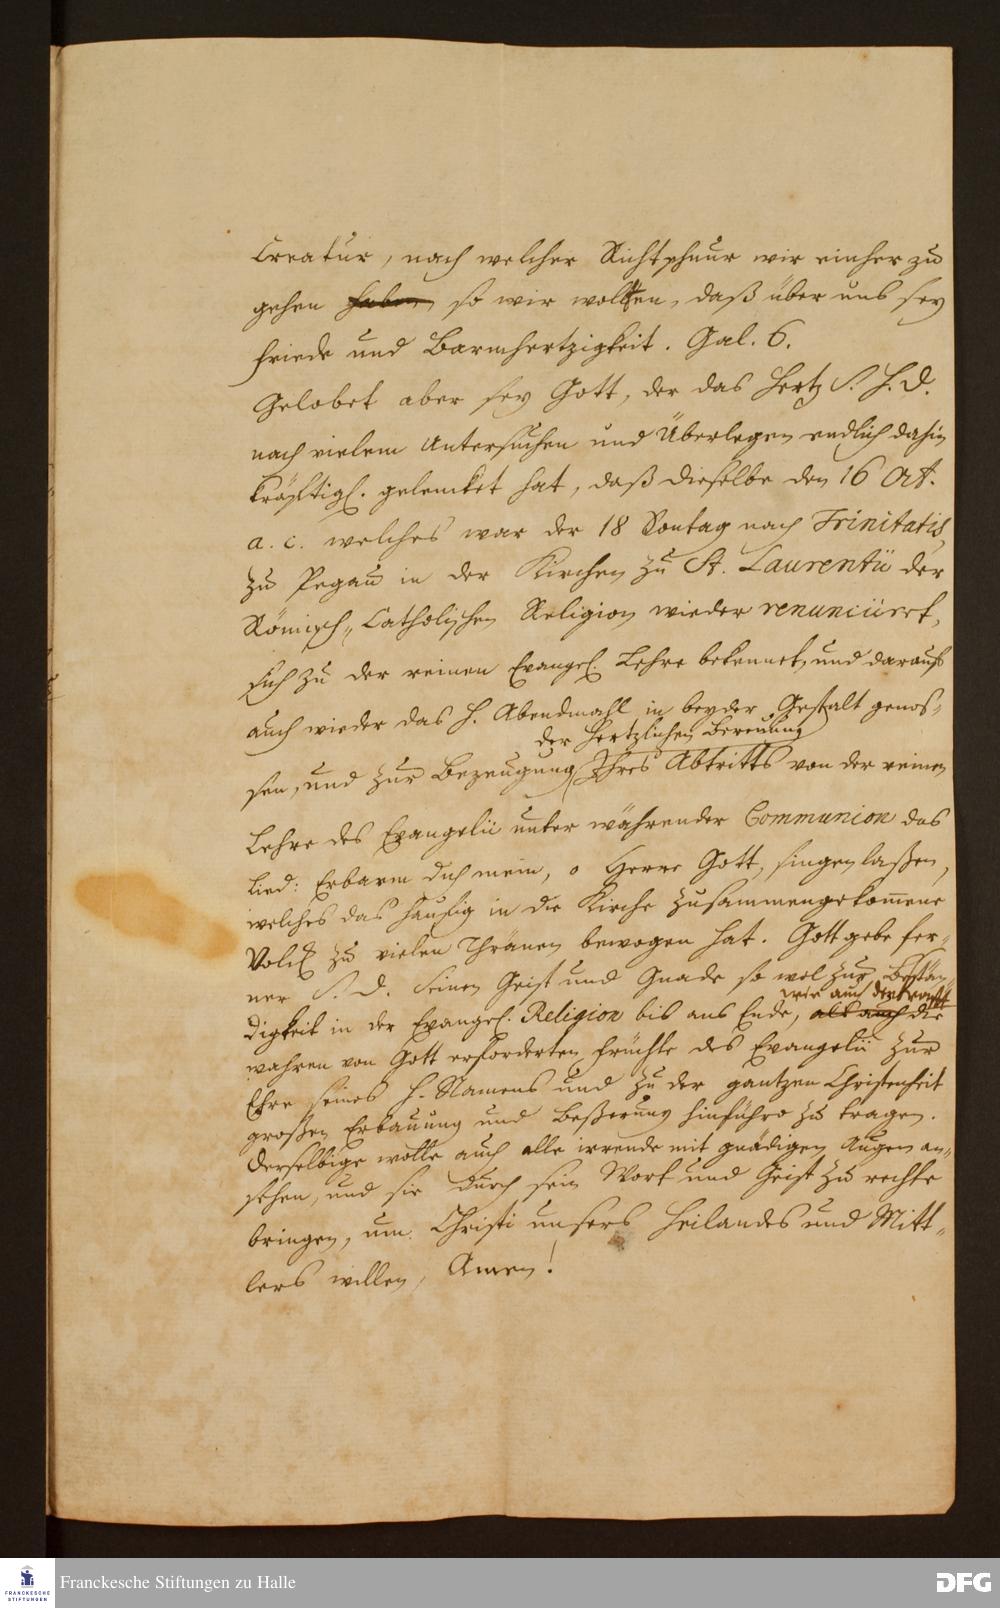 Creatur, nach welcher Richtschnur wir einher zu
gehen haben, so wir wolten, daß über uns sey
friede und Barmhertzigkeit. Gal. 6.
Gelobet aber sey Gott, der das Hertz S. H. D.
nach vielem Untersuchen und Überlegen endlich dahin
kräfftigl. gelencket hat, daß dieselbe den 16 Oct.
a. c. welches war der 18 Sontag nach Trinitatis,
zu Pegau in der Kirchen zu St. Laurentii der
Römisch-Catholischen Religion wieder renunciiert,
sich zu der reinen Evangel. Lehre bekennet, und darauf
auch wieder das H. Abendmahl in beyder Gestalt genos-
der hertzlichen Bereuung
sen, und zur Bezeugung Ihres Abtritts von der reinen
Lehre des Evangelii unter währender Communion das
Lied: Erbarm dich mein, o Herre Gott, singen laßen,
welches das häufig in die Kirche zusammengekom̄ene
Volck zu vielen Thränen bewogen hat. Gott gebe fer-
ner S. D. seinen Geist und Gnade so wol zur Bestän-
wie auch die
digkeit in der Evangel. Religion bis ans Ende, als auch die
wahren von Gott erforderten Früchte des Evangelii zur
Ehre seines H. Namens und zu der gantzen Christenheit
großen Erbauung und Beßerung hinführo zu tragen.
Derselbige wolle auch alle irrende mit gnädigen Augen an-
sehen, und sie durch sein Wort und Geist zu rechte
bringen, um Christi unsers Heilandes und Mitt-
lers willen, Amen!
FRANCKESCHE
STIFTUNGEN
Franckesche Stiftungen zu Halle
DFG